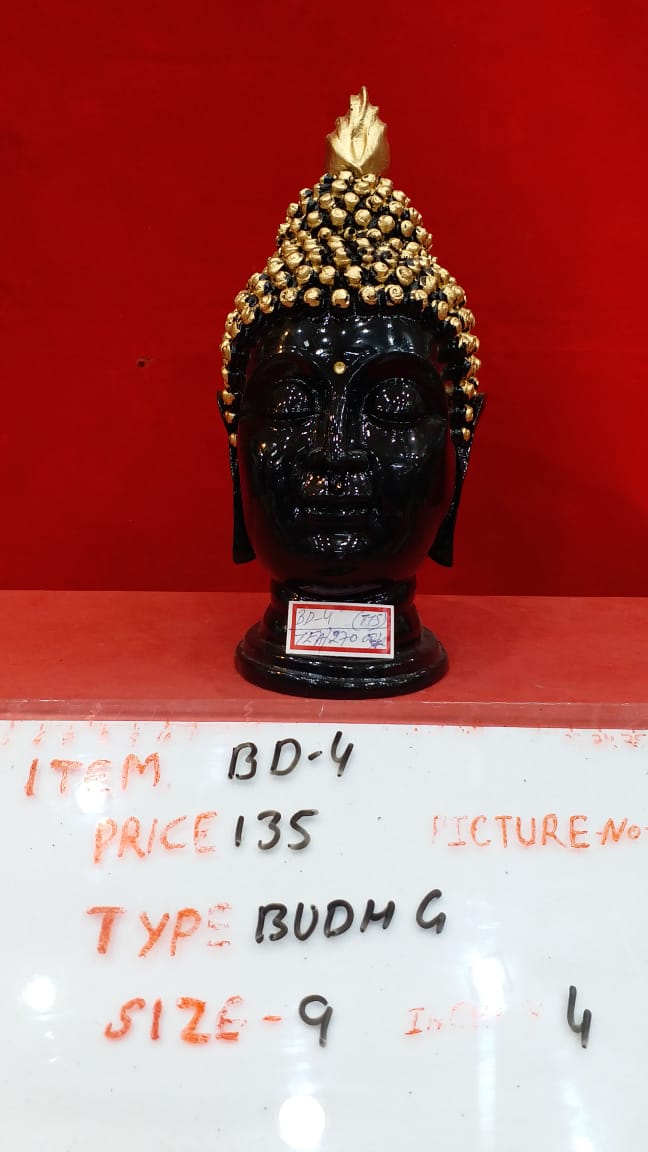 BD-4 (TTS)
270
ITEM BD-4
PRICE 135 PICTURE-NO-
TYPE BUDH G
SIZE - 9 4